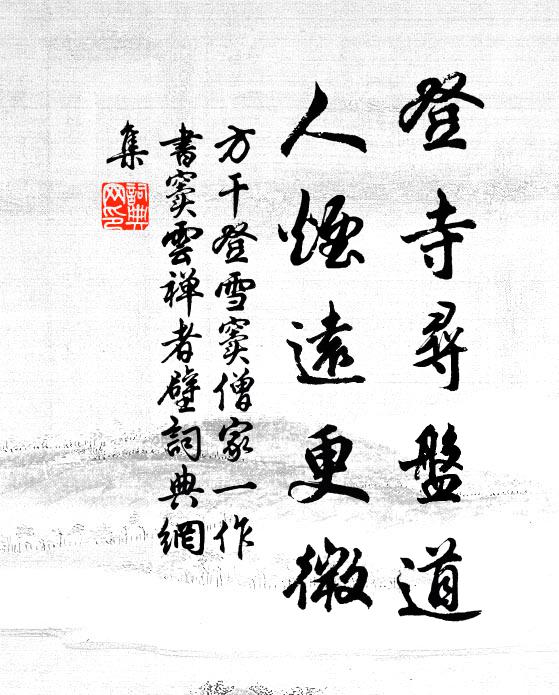 登寺尋盤道
人煙遠更微
方干登雪竇僧家一作
書竇雲禅者壁詞典網
集
詞典
网印